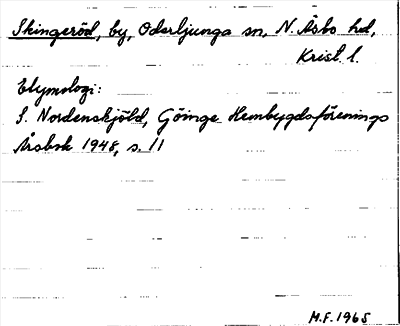 Skingeröd, by, Oderljunga sn, N. Åsbo hd,
Krist. l.
Etymologi:
S. Nordenskjöld, Göinge Hembygdsförenings
Årsbok 1948, s. 11
M.F. 1965